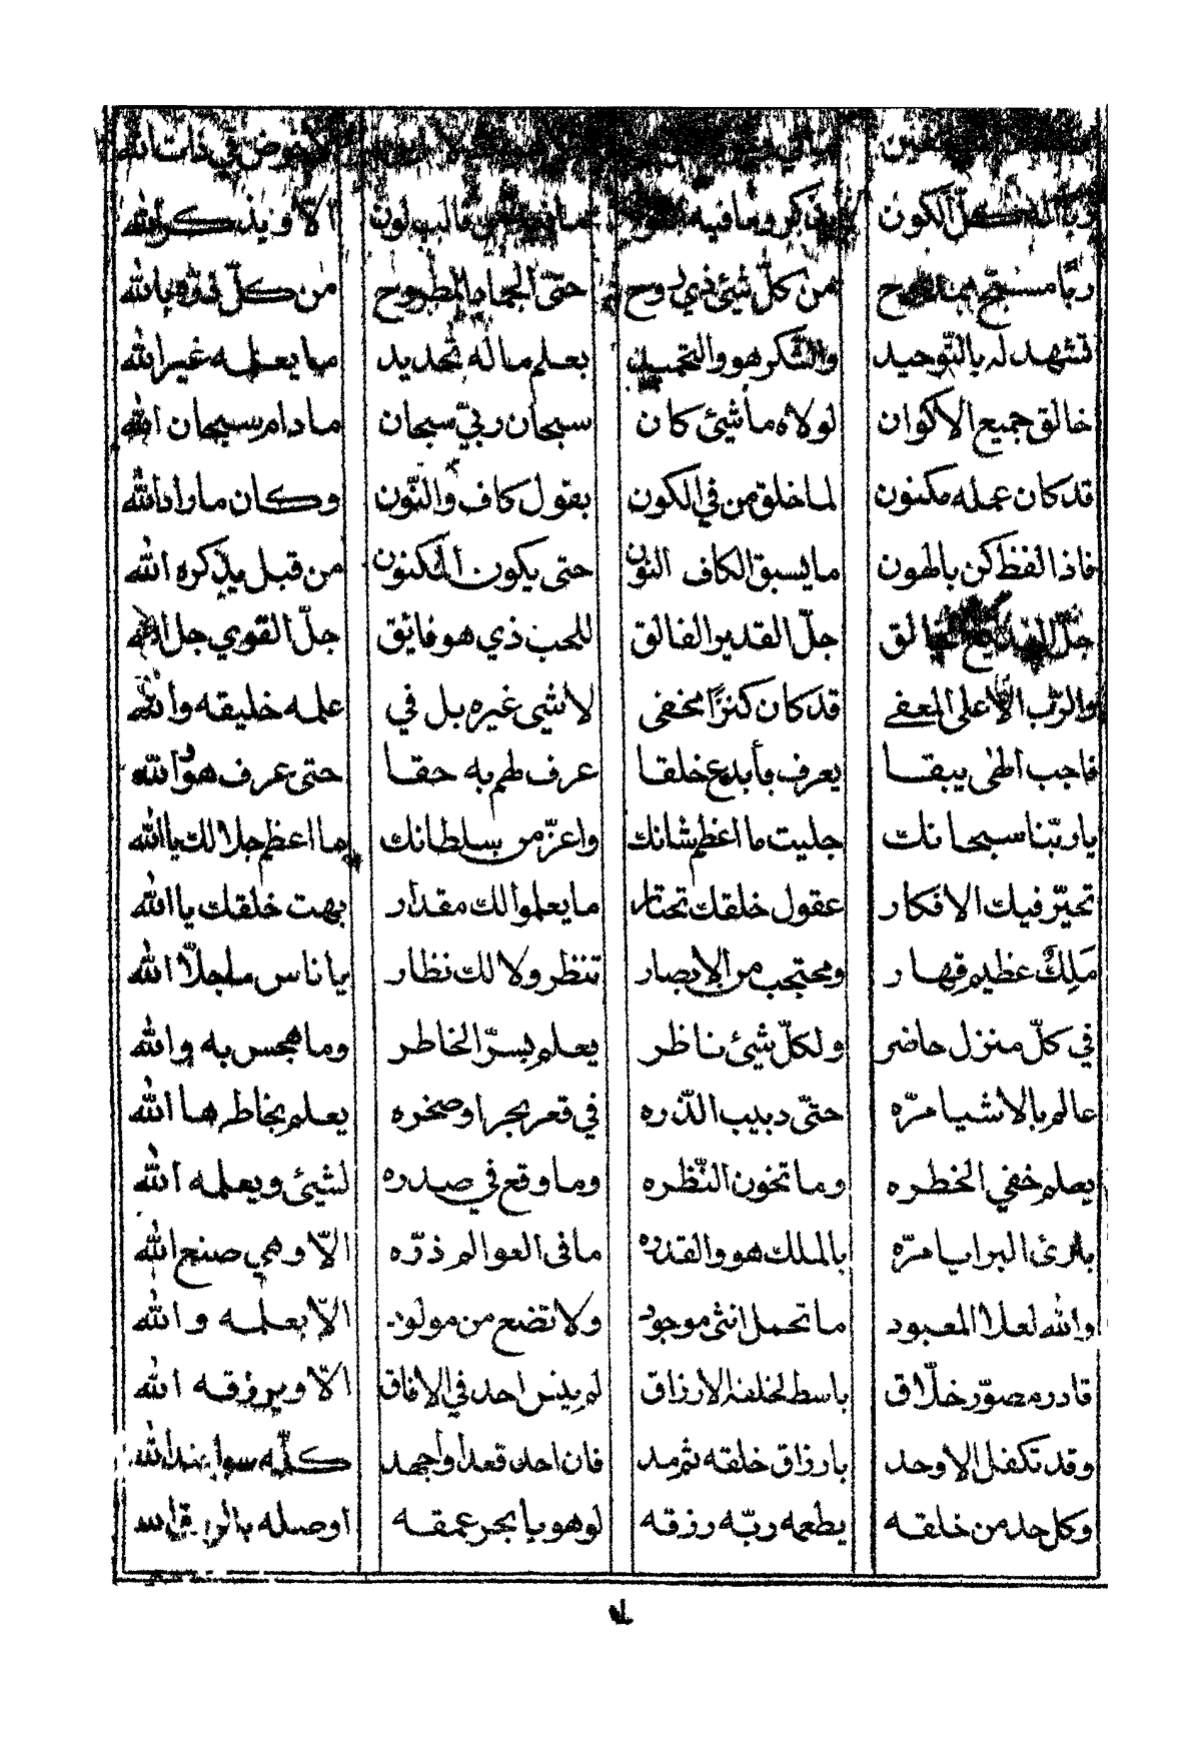 لاخوض في ذات الله
كل الكون الا ويذكر الله
من كل شيئ ذي روح حتى من كل بالله
تشهد له بالتّوحيد والشكر هو والتحميد بعلم ماله تحديد ما يعلمه غير الله
خالق جميع الاكوان لولاه ما شيئ كان سبحان ربيّ سبحان مادام سبحان الله
قد كان عمله مكنون لما خلق من في الكون بقول كاف والنّون وكان ما راد الله
فاذا لفظ كن بالهون ما يسبق الكاف النون حتى يكون المكنون من قبل يذكره الله
جلّ القدير الفالق للحب ذي هو فايق جلّ القوي جل الله
والرّب الاعلى المعفي قد كان كنزًا مخفى لا شي غيره بل في علمه خليقه والله
فاحب الهي يبقا يعرف فأبدع خلقا عرف لهم به حقا حتى عرف هو الله
يا ربّنا سبحانك جليت ما اعظم شانك واعزّ من سلطانك ما اعظم جلالك يا الله
تحيّر فيك الافكار عقول خلقك تحتار ما يعلموا لك مقدار بهت خلقك يا الله
مَلِكٌ عظيم قهار ومحتجب من الابصار تنظر ولا لك نظار يا ناس ما جلّا الله
في كلّ منزل حاضر ولكلّ شيئ ناظر يعلم بسرّ الخاطر وما هجس به والله
عالم بالاشيا مرّه حتىّ دبيب الذّره في قعر بحر او صخره يعلم بخاطرها الله
يعلم خفي الخطره وما تخون النّظره وما وقع في صدره لشيئ ويعلمه الله
بارئ البرايا مرّه بالملك هو والقدره ما في العوالم ذرّه الاّ وهي صنع الله
والله لعلا المعبود ما تحمل انثى موجود ولا تضع من مولود الاّ بعلمه والله
قادر مصوّر خلّاق باسط لخلقه الارزاق لم ينس احد في الافاق الاّ ويرزقه الله
وقد تكفل الاوحد بارزاق خلقه ثم مد فان احد قعد او اجهد كلّه سوا عند الله
وكل حد من خلقه يطعمه ربّه رزقه لو هو بابحر عمقه اوصله بالرزق الله